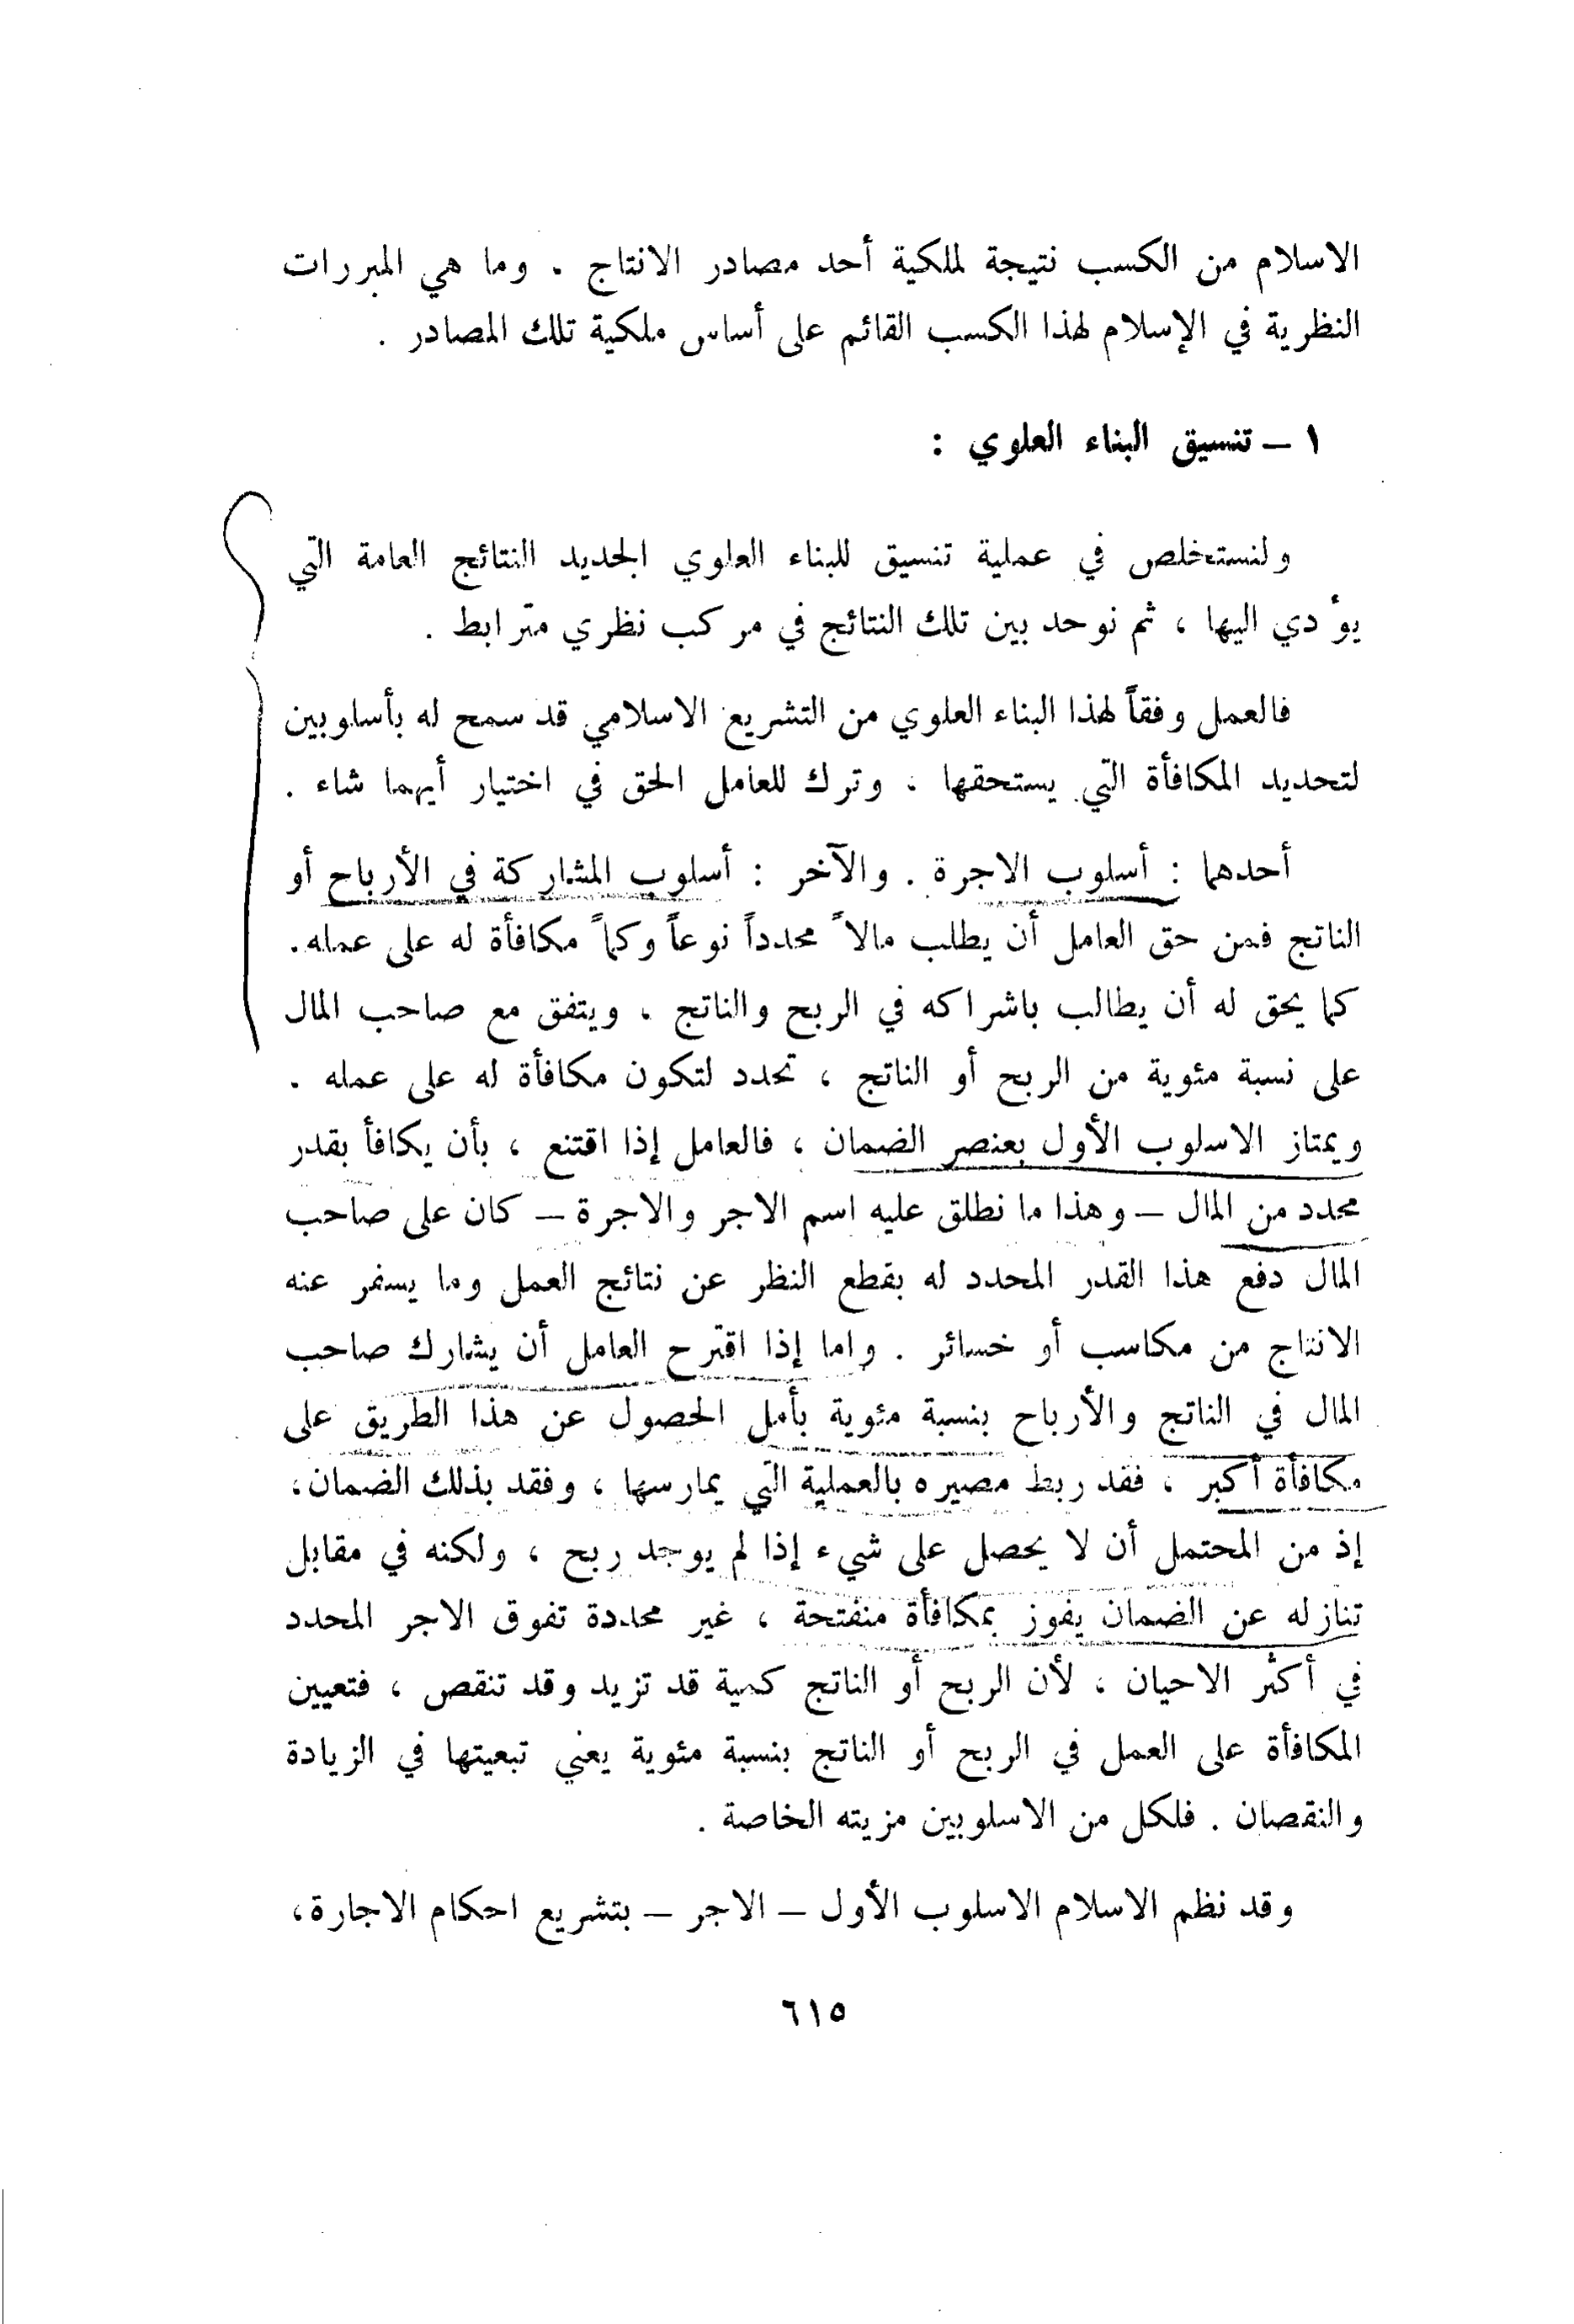 الاسلام من الكسب نتيجة لملكية أحد مصادر الانتاج . وما هي المبررات
النظرية في الإسلام لهذا الكسب القائم على أساس ملكية تلك المصادر .
١ – تنسيق البناء العلوي :
ولنستخلص في عملية تنسيق للبناء العلوي الجديد النتائج العامة التي
يؤدي اليها ، ثم نوحد بين تلك النتائج في مركب نظري مترابط .
فالعمل وفقاً لهذا البناء العلوي من التشريع الاسلامي قد سمح له بأسلوبين
لتحديد المكافأة التي يستحقها ، وترك للعامل الحق في اختيار أيهما شاء .
أحدهما : أسلوب الاجرة . والآخر : أسلوب المشاركة في الأرباح أو
الناتج فمن حق العامل أن يطلب مالاً محدداً نوعاً وكماً مكافأة له على عمله.
كما يحق له أن يطالب باشراكه في الربح والناتج ، ويتفق مع صاحب المال
على نسبة مئوية من الربح أو الناتج ، تحدد لتكون مكافأة له على عمله .
ويمتاز الاسلوب الأول بعنصر الضمان ، فالعامل إذا اقتنع ، بأن يكافأ بقدر
محدد من المال – وهذا ما نطلق عليه اسم الاجر والاجرة – كان على صاحب
المال دفع هذا القدر المحدد له بقطع النظر عن نتائج العمل وما يسفر عنه
الانتاج من مكاسب أو خسائر . واما إذا اقترح العامل أن يشارك صاحب
المال في الناتج والأرباح بنسبة مئوية بأمل الحصول عن هذا الطريق على
مكافأة أكبر ، فقد ربط مصيره بالعملية التي يمارسها ، وفقد بذلك الضمان،
إذ من المحتمل أن لا يحصل على شيء إذا لم يوجد ربح ، ولكنه في مقابل
تنازله عن الضمان يفوز بمكافأة منفتحة ، غير محددة تفوق الاجر المحدد
في أكثر الاحيان ، لأن الربح أو الناتج كمية قد تزيد وقد تنقص ، فتعيين
المكافأة على العمل في الربح أو الناتج بنسبة مئوية يعني تبعيتها في الزيادة
والنقصان . فلكل من الاسلوبين مزيته الخاصة .
وقد نظم الاسلام الاسلوب الأول – الاجر – بتشريع احكام الاجارة،
٦١٥